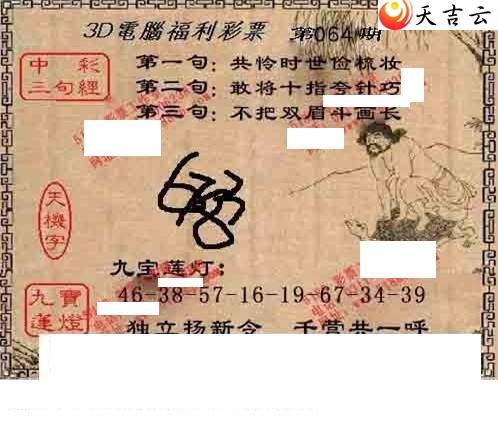 天吉云
3D電腦福利彩票 第064期
中彩
三句經
第一句：共怜时世俭梳妆
第二句：敢将十指夸针巧
第三句：不把双眉斗画长
天機字
九宝莲灯：
九寶
蓮燈
46-38-57-16-19-67-34-39
独立扬新令 千营共一呼